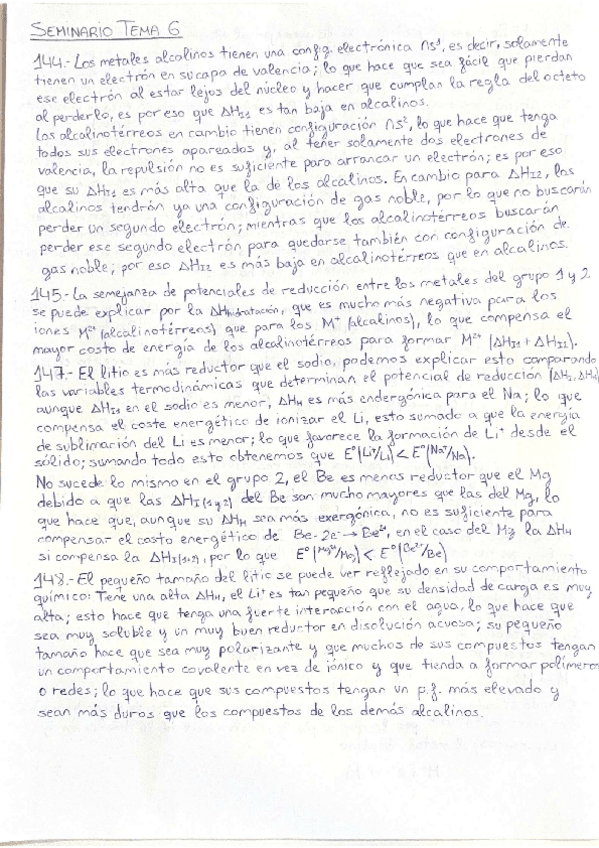 SEMINARIO TEMA 6
144.- Los metales alcalinos tienen una config. electrónica ns¹, es decir, solamente
tienen un electrón en su capa de valencia; lo que hace que sea fácil que pierdan
ese electrón al estar lejos del núcleo y hacer que cumplan la regla del octeto
al perderlo, es por eso que ΔH_I1 es tan baja en alcalinos.
Los alcalinotérreos en cambio tienen configuración ns², lo que hace que tenga
todos sus electrones apareados y, al tener solamente dos electrones de
valencia, la repulsión no es suficiente para arrancar un electrón; es por eso
que su ΔH_I1 es más alta que la de los alcalinos. En cambio para ΔH_I2, los
alcalinos tendrán ya una configuración de gas noble, por lo que no buscarán
perder un segundo electrón; mientras que los alcalinotérreos buscarán
perder ese segundo electrón para quedarse también con configuración de
gas noble; por eso ΔH_I2 es más baja en alcalinotérreos que en alcalinos.
145.- La semejanza de potenciales de reducción entre los metales del grupo 1 y 2
se puede explicar por la ΔH_hidratación, que es mucho más negativa para los
iones M²⁺ (alcalinotérreos) que para los M⁺ (alcalinos), lo que compensa el
mayor costo de energía de los alcalinotérreos para formar M²⁺ (ΔH_I1 + ΔH_I2).
147.- El litio es más reductor que el sodio, podemos explicar esto comparando
las variables termodinámicas que determinan el potencial de reducción (ΔH_I, ΔH_H)
aunque ΔH_I1 en el sodio es menor, ΔH_H es más endergónica para el Na; lo que
compensa el coste energético de ionizar el Li, esto sumado a que la energía
de sublimación del Li es menor; lo que favorece la formación de Li⁺ desde el
sólido; sumando todo esto obtenemos que E°(Li⁺/Li) < E°(Na⁺/Na).
No sucede lo mismo en el grupo 2, el Be es menos reductor que el Mg
debido a que las ΔH_I (1 y 2) del Be son mucho mayores que las del Mg, lo
que hace que, aunque su ΔH_H sea más exergónica, no es suficiente para
compensar el costo energético de Be - 2e⁻ → Be²⁺, en el caso del Mg la ΔH_H
si compensa la ΔH_I(1,2), por lo que E°(Mg²⁺/Mg) < E°(Be²⁺/Be)
148.- El pequeño tamaño del litio se puede ver reflejado en su comportamiento
químico: Tiene una alta ΔH_H, el Li⁺ es tan pequeño que su densidad de carga es muy
alta; esto hace que tenga una fuerte interacción con el agua, lo que hace que
sea muy soluble y un muy buen reductor en disolución acuosa; su pequeño
tamaño hace que sea muy polarizante y que muchos de sus compuestos tengan
un comportamiento covalente en vez de iónico y que tienda a formar polímeros
o redes; lo que hace que sus compuestos tengan un p.f. más elevado y
sean más duros que los compuestos de los demás alcalinos.